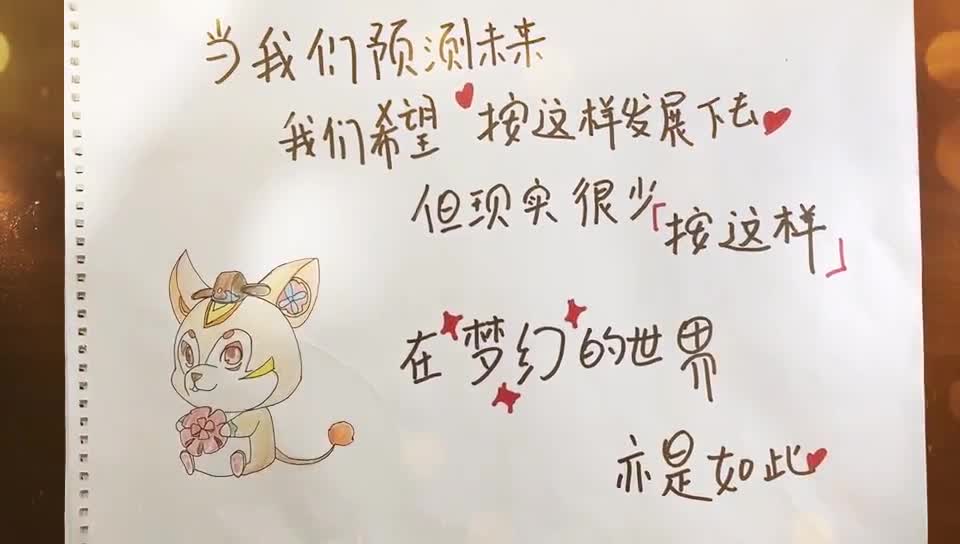 当我们预测未来
我们希望 按这样发展下去
但现实很少「按这样」
在梦幻的世界
亦是如此